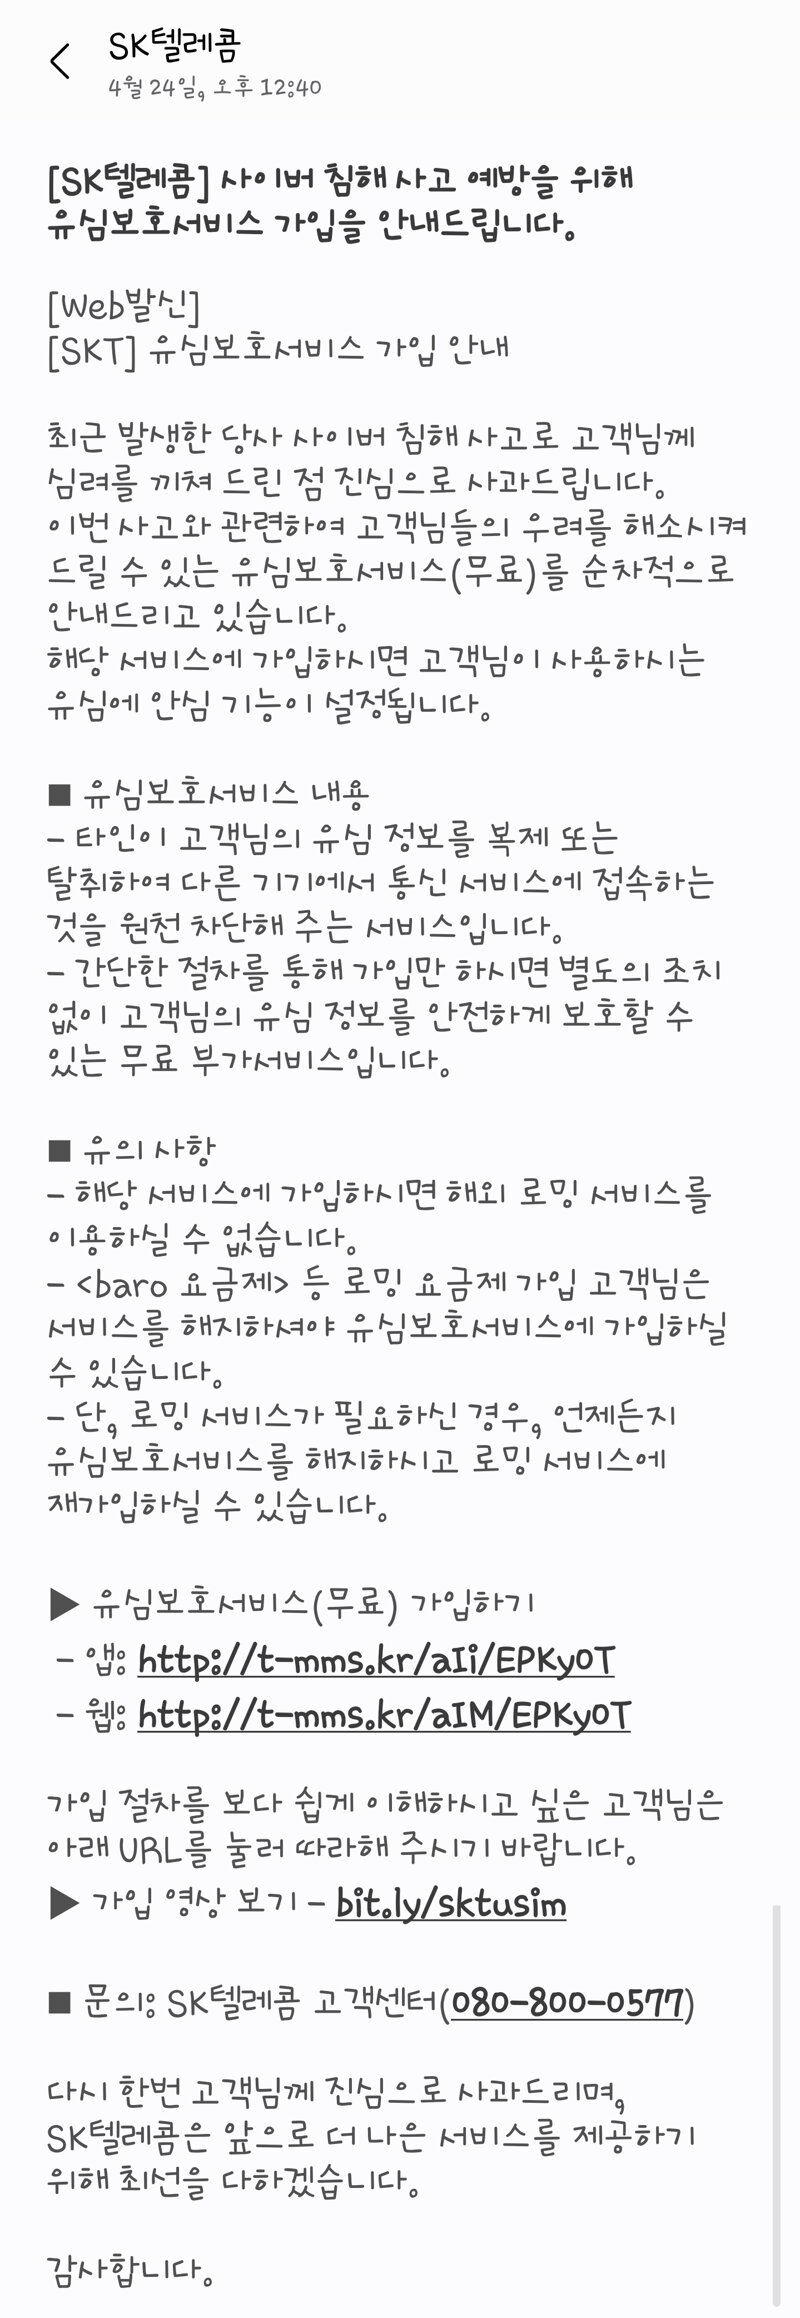 SK텔레콤
4월 24일, 오후 12:40
[SK텔레콤] 사이버 침해 사고 예방을 위해
유심보호서비스 가입을 안내드립니다.
[Web발신]
[SKT] 유심보호서비스 가입 안내
최근 발생한 당사 사이버 침해 사고로 고객님께
심려를 끼쳐 드린 점 진심으로 사과드립니다.
이번 사고와 관련하여 고객님들의 우려를 해소시켜
드릴 수 있는 유심보호서비스(무료)를 순차적으로
안내드리고 있습니다.
해당 서비스에 가입하시면 고객님이 사용하시는
유심에 안심 기능이 설정됩니다.
■ 유심보호서비스 내용
- 타인이 고객님의 유심 정보를 복제 또는
탈취하여 다른 기기에서 통신 서비스에 접속하는
것을 원천 차단해 주는 서비스입니다.
- 간단한 절차를 통해 가입만 하시면 별도의 조치
없이 고객님의 유심 정보를 안전하게 보호할 수
있는 무료 부가서비스입니다.
■ 유의 사항
- 해당 서비스에 가입하시면 해외 로밍 서비스를
이용하실 수 없습니다.
- <baro 요금제> 등 로밍 요금제 가입 고객님은
서비스를 해지하셔야 유심보호서비스에 가입하실
수 있습니다.
- 단, 로밍 서비스가 필요하신 경우, 언제든지
유심보호서비스를 해지하시고 로밍 서비스에
재가입하실 수 있습니다.
▶ 유심보호서비스(무료) 가입하기
- 앱: http://t-mms.kr/aIi/EPKy0T
- 웹: http://t-mms.kr/aIM/EPKy0T
가입 절차를 보다 쉽게 이해하시고 싶은 고객님은
아래 URL를 눌러 따라해 주시기 바랍니다.
▶ 가입 영상 보기 - bit.ly/sktusim
■ 문의: SK텔레콤 고객센터(080-800-0577)
다시 한번 고객님께 진심으로 사과드리며,
SK텔레콤은 앞으로 더 나은 서비스를 제공하기
위해 최선을 다하겠습니다.
감사합니다.